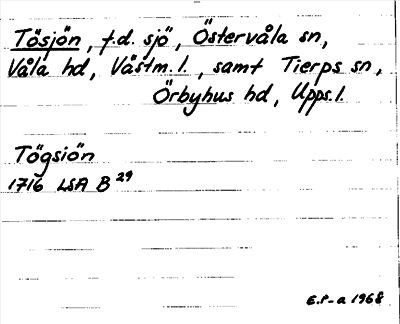 Tösjön, f.d. sjö, Östervåla sn,
Våla hd, Västm. l., samt Tierps sn,
Örbyhus hd, Upps. l.
Tögsiön
1716 LSA B 29
E.P-a 1968